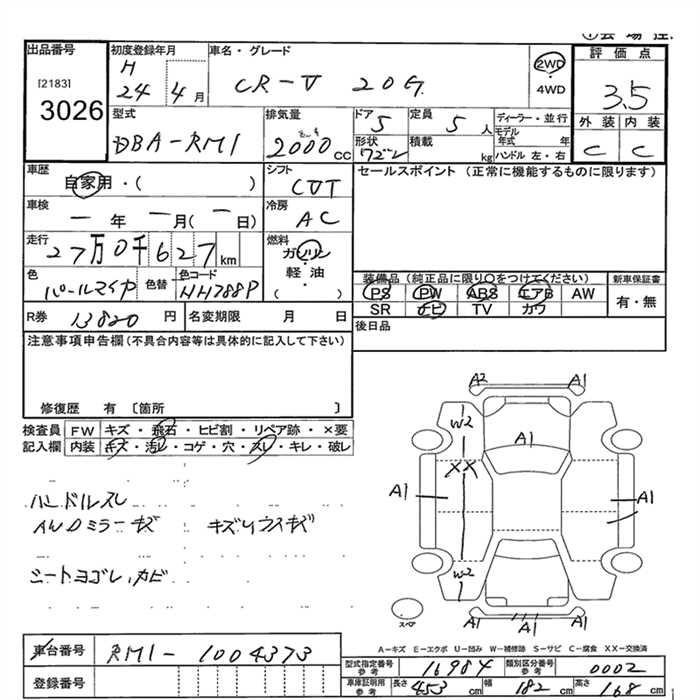 出品番号
[2183]
3026
初度登録年月
H
24年 4月
車名・グレード
CR-V 20G
2WD
・
4WD
評価点
3.5
外装 内装
C C
型式
DBA-RM1
排気量
2000cc
ドア 5
形状 ワゴン
定員 5人
積載 kg
ディーラー・並行
モデル年式 年
ハンドル 左・右
車歴
自家用・( )
シフト
CVT
セールスポイント(正常に機能するものに限ります)
車検
ー年 ー月(ー日)
冷房
AC
走行
27万0千627km
燃料
ガソリン
軽油
( ・ )
色
パールマイカ
色替
色コード
NH788P
装備品(純正品に限り○をつけてください)
新車保証書
PS PW ABS エアB AW
SR ナビ TV カワ
有・無
R券 13820円
名変期限 月 日
後日品
注意事項申告欄(不具合内容等は具体的に記入して下さい)
修復歴 有〔箇所 〕
検査員 FW キズ・飛石・ヒビ割・リペア跡・×要
記入欄 内装 キズ・汚レ・コゲ・穴・スレ・キレ・破レ
ハンドルスレ
キズ
シートヨゴレ、カビ
A2 A1
W2
A1
XX
A1 A1
W2
A1 A1
スペア
A-キズ E-エクボ U-凹み W-補修跡 S-サビ C-腐食 XX-交換済
車台番号 RM1-1004373
登録番号
型式指定番号 参考 16984
類別区分番号 参考 0002
車庫証明用 参考 長さ 453cm 幅 182cm 高さ 168cm